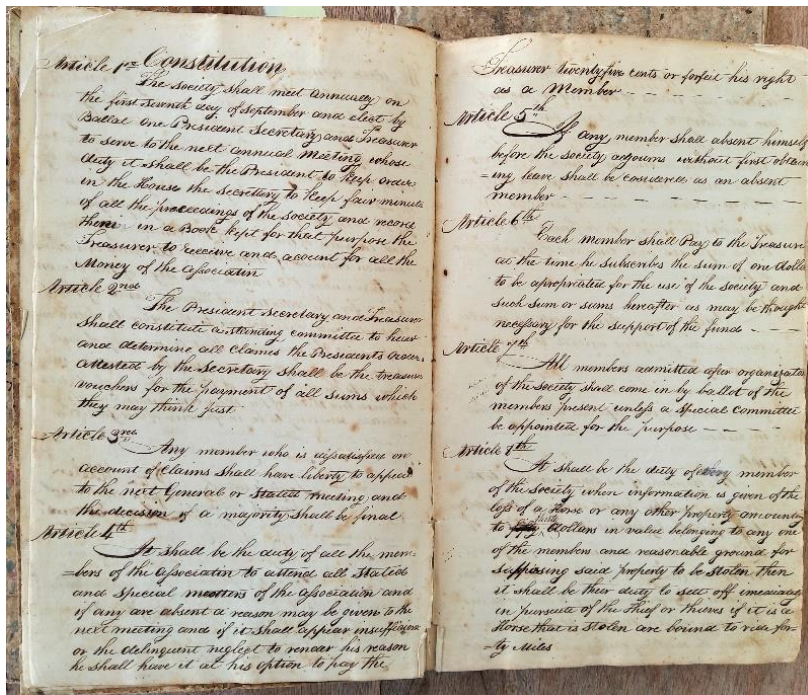 Article 1st Constitution
The society shall meet annually on
the first seventh day of September and elect by
Ballot one President Secretary and Treasurer
to serve to the next annual Meeting whose
duty it shall be the President to keep order
in the House the Secretary to keep fair minuts
of all the proceedings of the society and record
them in a Book kept for that purpose the
Treasurer to receive and account for all the
Money of the Association
Article 2nd
The President Secretary and Treasurer
shall constitute a standing committee to hear
and determine all claims the Presidents orders
attested by the Secretary shall be the treasurers
vouchers for the payment of all sums which
they may think just
Article 3rd
Any member who is disatisfied on
account of claims shall have liberty to appeal
to the next General or Stated meeting and
the decision of a majority shall be final
Article 4th
It shall be the duty of all the mem
=bers of the association to attend all Stated
and special meetens of the association and
if any are absent a reason may be given to the
next meeting and if it shall appear insufficient
or the delinquent neglect to render his reason
he shall have it at his option to pay the
Treasurer twenty five cents or forfeit his right
as a Member
Article 5th
If any member shall absent himself
before the society adjourns without first obtain
=ing leave shall be cosidered as an absent
member
Article 6th
Each member shall Pay to the Treasurer
at the time he subscribes the sum of one dollar
to be apropriated for the use of the society and
such sum or sums hereafter as may be thought
necessary for the support of the fund
Article 7th
All members admitted after organization
of the society shall come in by ballot of the
members present unless a special committee
be appointed for the purpose
Article 7th
It shall be the duty of every member
of the society when information is given of the
loss of a Horse or any other property amounting
to dollars in value belonging to any one
of the members and reasonable ground for
supposing said property to be stolen then
it shall be their duty to sett off imediately
in pursute of the Thief or thieves if it is a
Horse that is stolen are bound to ride for=
=ty Miles